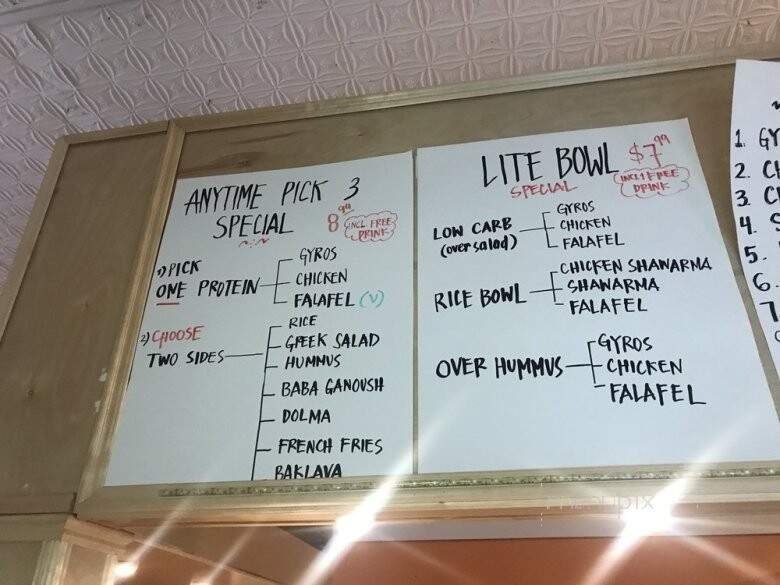 ANYTIME PICK 3
SPECIAL 8.99 INCL FREE
DRINK
1) PICK
ONE PROTEIN
GYROS
CHICKEN
FALAFEL (V)
2) CHOOSE
TWO SIDES
RICE
GREEK SALAD
HUMMUS
BABA GANOUSH
DOLMA
FRENCH FRIES
BAKLAVA
LITE BOWL $7.99
SPECIAL
INCL FREE
DRINK
LOW CARB
(over salad)
GYROS
CHICKEN
FALAFEL
RICE BOWL
CHICKEN SHAWARMA
SHAWARMA
FALAFEL
OVER HUMMUS
GYROS
CHICKEN
FALAFEL
1. GY
2. CH
3. C
4. S
5.
6.
7